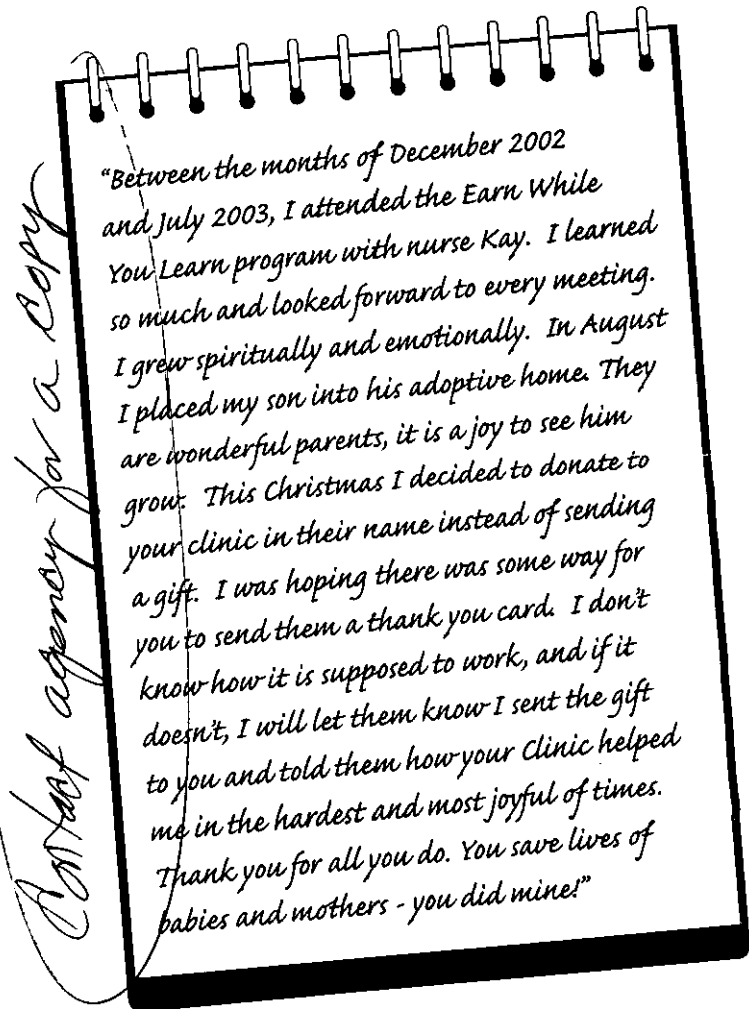 Contact agency for a copy
“Between the months of December 2002
and July 2003, I attended the Earn While
You Learn program with nurse Kay. I learned
so much and looked forward to every meeting.
I grew spiritually and emotionally. In August
I placed my son into his adoptive home. They
are wonderful parents, it is a joy to see him
grow. This Christmas I decided to donate to
your clinic in their name instead of sending
a gift. I was hoping there was some way for
you to send them a thank you card. I don't
know how it is supposed to work, and if it
doesn't, I will let them know I sent the gift
to you and told them how your Clinic helped
me in the hardest and most joyful of times.
Thank you for all you do. You save lives of
babies and mothers - you did mine!”